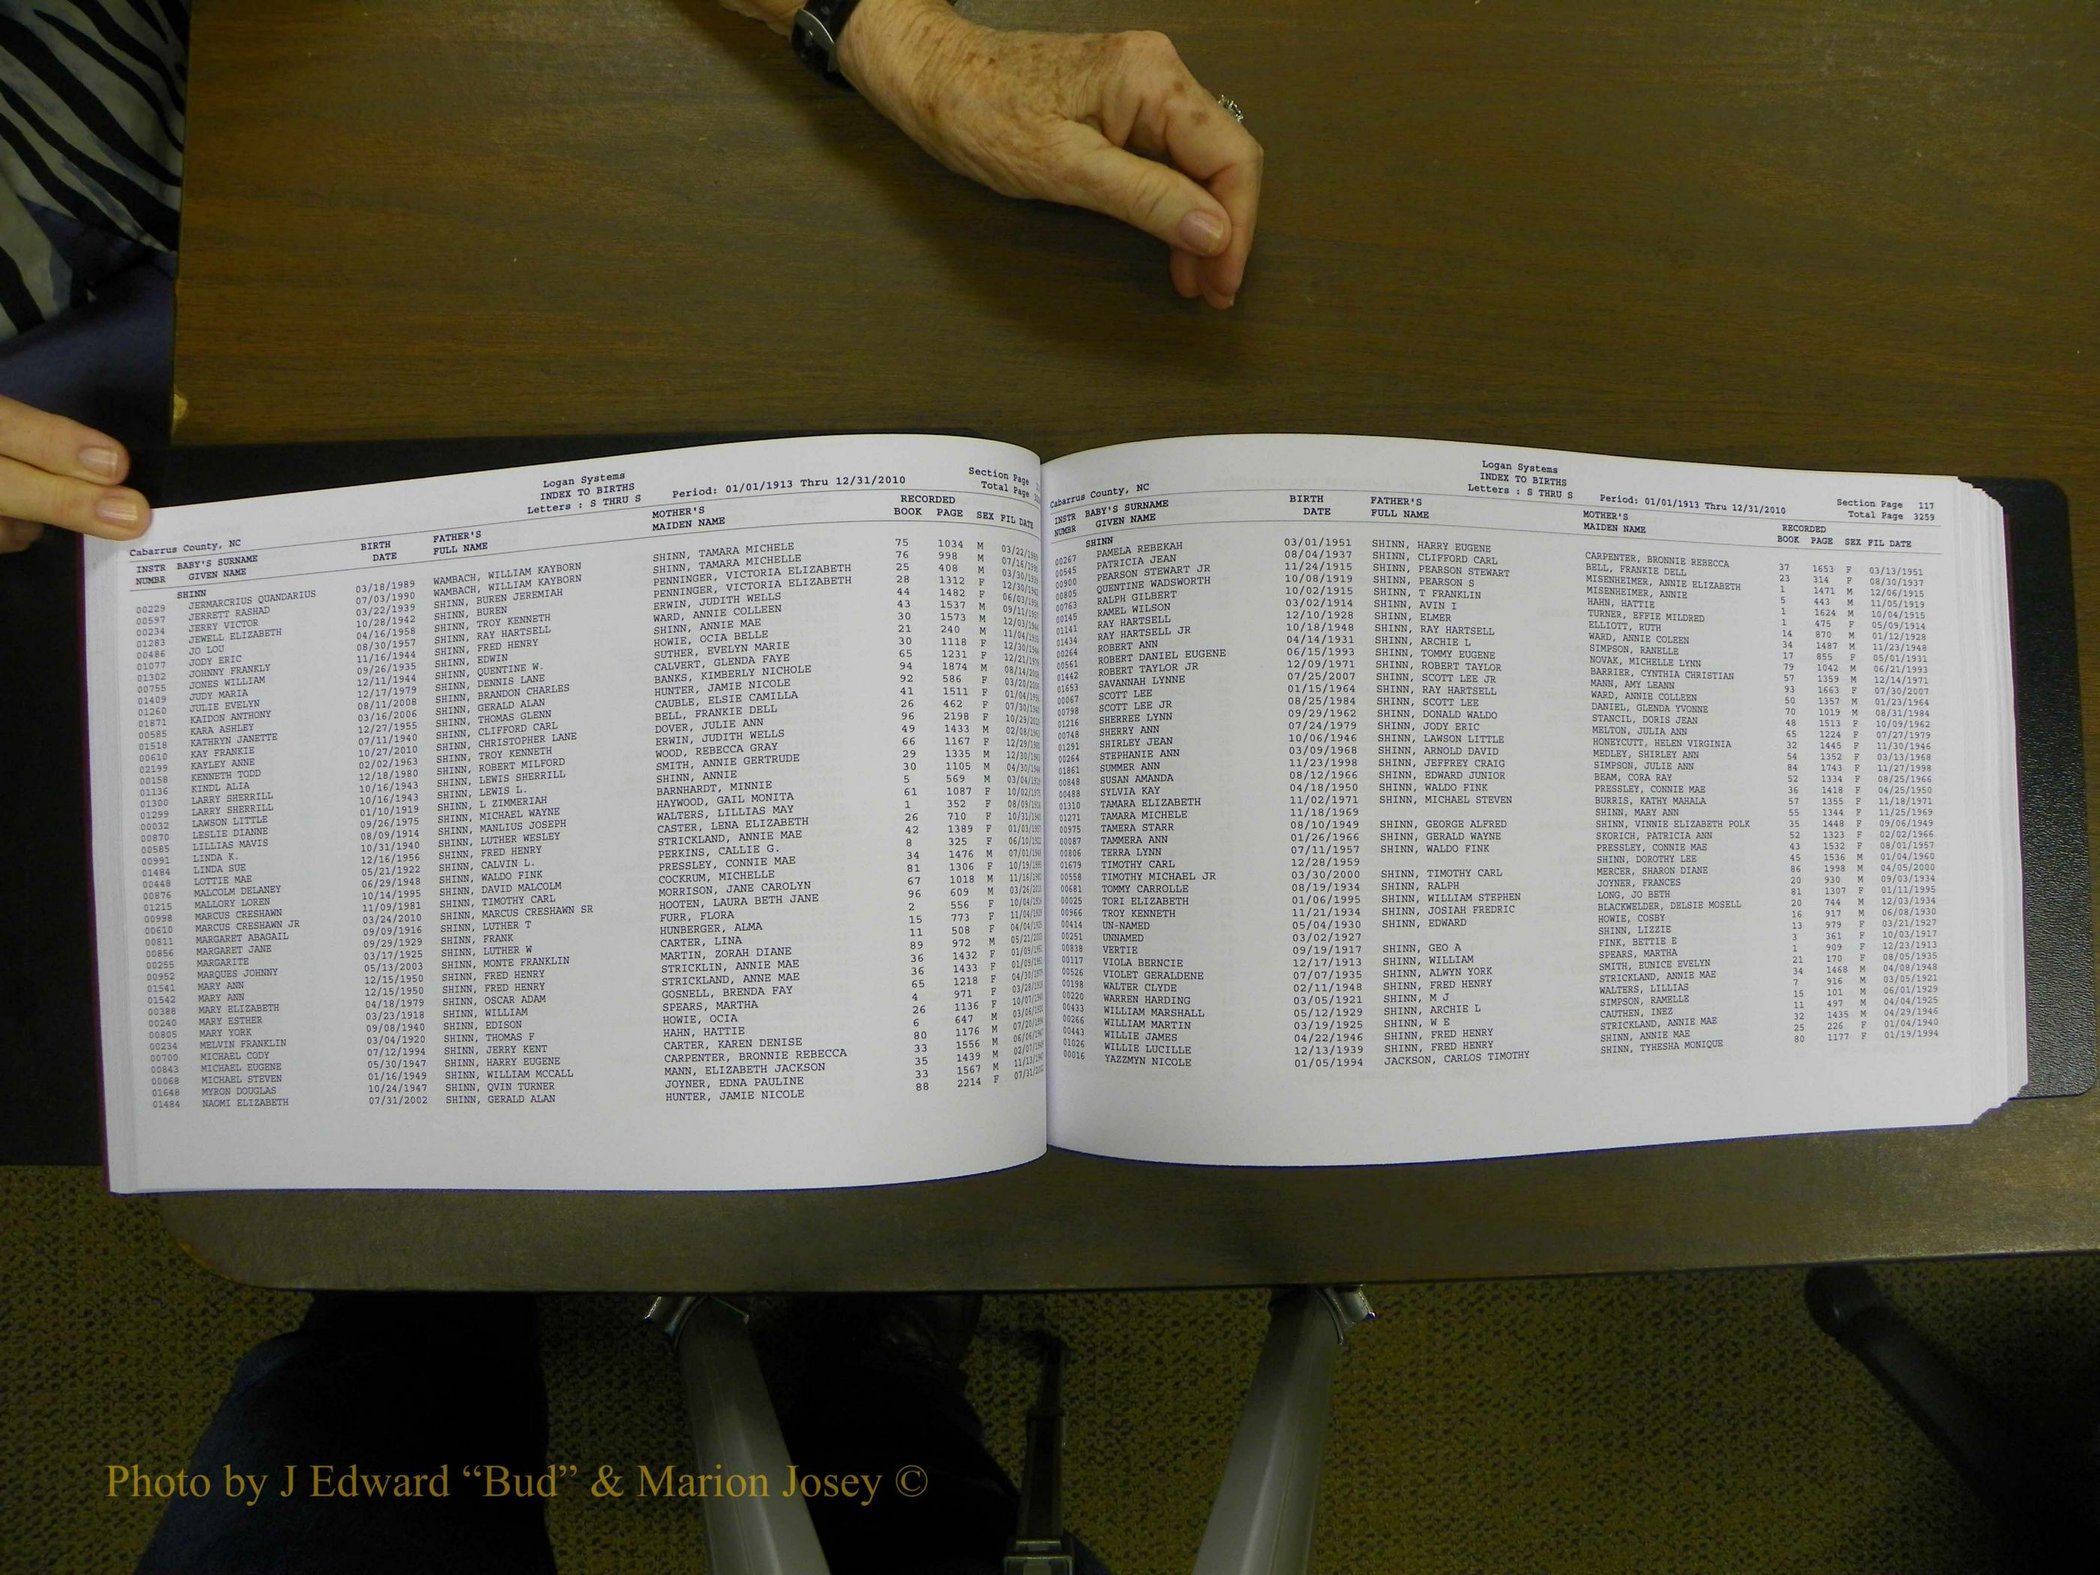 Logan Systems
INDEX TO BIRTHS
Letters : S THRU S
Cabarrus County, NC Period: 01/01/1913 Thru 12/31/2010 Section Page
Total Page
INSTR BABY'S SURNAME BIRTH FATHER'S MOTHER'S RECORDED
NUMBR GIVEN NAME DATE FULL NAME MAIDEN NAME BOOK PAGE SEX FIL DATE
SHINN
00229 JERMARCRIUS QUANDARIUS 03/18/1989 WAMBACH, WILLIAM KAYBORN SHINN, TAMARA MICHELE 75 1034 M
00597 JERRETT RASHAD 07/03/1990 WAMBACH, WILLIAM KAYBORN SHINN, TAMARA MICHELLE 76 998 M
00234 JERRY VICTOR 03/22/1939 SHINN, BUREN JEREMIAH PENNINGER, VICTORIA ELIZABETH 25 408 M
01283 JEWELL ELIZABETH 10/28/1942 SHINN, BUREN PENNINGER, VICTORIA ELIZABETH 28 1312 F
00486 JO LOU 04/16/1958 SHINN, TROY KENNETH ERWIN, JUDITH WELLS 44 1482 F
01077 JODY ERIC 08/30/1957 SHINN, RAY HARTSELL WARD, ANNIE COLLEEN 43 1537 M
01302 JOHNNY FRANKLY 11/16/1944 SHINN, FRED HENRY SHINN, ANNIE MAE 30 1573 M
00755 JONES WILLIAM 09/26/1935 SHINN, EDWIN HOWIE, OCIA BELLE 21 240 M
01409 JUDY MARIA 12/11/1944 SHINN, QUENTINE W. SUTHER, EVELYN MARIE 30 1118 F
01260 JULIE EVELYN 12/17/1979 SHINN, DENNIS LANE CALVERT, GLENDA FAYE 65 1231 F
01871 KAIDON ANTHONY 08/11/2008 SHINN, BRANDON CHARLES BANKS, KIMBERLY NICHOLE 94 1874 M
00585 KARA ASHLEY 03/16/2006 SHINN, GERALD ALAN HUNTER, JAMIE NICOLE 92 586 F
01518 KATHRYN JANETTE 12/27/1955 SHINN, THOMAS GLENN CAUBLE, ELSIE CAMILLA 41 1511 F
00610 KAY FRANKIE 07/11/1940 SHINN, CLIFFORD CARL BELL, FRANKIE DELL 26 462 F
02199 KAYLEY ANNE 10/27/2010 SHINN, CHRISTOPHER LANE DOVER, JULIE ANN 96 2198 F
00158 KENNETH TODD 02/02/1963 SHINN, TROY KENNETH ERWIN, JUDITH WELLS 49 1433 M
01136 KINDL ALIA 12/18/1980 SHINN, ROBERT MILFORD WOOD, REBECCA GRAY 66 1167 F
01300 LARRY SHERRILL 10/16/1943 SHINN, LEWIS SHERRILL SMITH, ANNIE GERTRUDE 29 1335 M
01299 LARRY SHERRILL 10/16/1943 SHINN, LEWIS L. SHINN, ANNIE 30 1105 M
00032 LAWSON LITTLE 01/10/1919 SHINN, L ZIMMERIAH BARNHARDT, MINNIE 5 569 M
00870 LESLIE DIANNE 09/26/1975 SHINN, MICHAEL WAYNE HAYWOOD, GAIL MONITA 61 1087 F
00585 LILLIAS MAVIS 08/09/1914 SHINN, MANLIUS JOSEPH WALTERS, LILLIAS MAY 1 352 F
00991 LINDA K. 10/31/1940 SHINN, LUTHER WESLEY CASTER, LENA ELIZABETH 26 710 F
01484 LINDA SUE 12/16/1956 SHINN, FRED HENRY STRICKLAND, ANNIE MAE 42 1389 F
00448 LOTTIE MAE 05/21/1922 SHINN, CALVIN L. PERKINS, CALLIE G. 8 325 F
00876 MALCOLM DELANEY 06/29/1948 SHINN, WALDO FINK PRESSLEY, CONNIE MAE 34 1476 M
01215 MALLORY LOREN 10/14/1995 SHINN, DAVID MALCOLM COCKRUM, MICHELLE 81 1306 F
00998 MARCUS CRESHAWN 11/09/1981 SHINN, TIMOTHY CARL MORRISON, JANE CAROLYN 67 1018 M
00610 MARCUS CRESHAWN JR 03/24/2010 SHINN, MARCUS CRESHAWN SR HOOTEN, LAURA BETH JANE 96 609 M
00811 MARGARET ABAGAIL 09/09/1916 SHINN, LUTHER T FURR, FLORA 2 556 F
00856 MARGARET JANE 09/29/1929 SHINN, FRANK HUNBERGER, ALMA 15 773 F
00255 MARGARITE 03/17/1925 SHINN, LUTHER W CARTER, LINA 11 508 F
00952 MARQUES JOHNNY 05/13/2003 SHINN, MONTE FRANKLIN MARTIN, ZORAH DIANE 89 972 M
01541 MARY ANN 12/15/1950 SHINN, FRED HENRY STRICKLIN, ANNIE MAE 36 1432 F
01542 MARY ANN 12/15/1950 SHINN, FRED HENRY STRICKLAND, ANNE MAE 36 1433 F
00388 MARY ELIZABETH 04/18/1979 SHINN, OSCAR ADAM GOSNELL, BRENDA FAY 65 1218 F
00240 MARY ESTHER 03/23/1918 SHINN, WILLIAM SPEARS, MARTHA 4 971 F
00805 MARY YORK 09/08/1940 SHINN, EDISON HOWIE, OCIA 26 1136 F
00234 MELVIN FRANKLIN 03/04/1920 SHINN, THOMAS F HAHN, HATTIE 6 647 M
00700 MICHAEL CODY 07/12/1994 SHINN, JERRY KENT CARTER, KAREN DENISE 80 1176 M
00843 MICHAEL EUGENE 05/30/1947 SHINN, HARRY EUGENE CARPENTER, BRONNIE REBECCA 33 1556 M
00068 MICHAEL STEVEN 01/16/1949 SHINN, WILLIAM MCCALL MANN, ELIZABETH JACKSON 35 1439 M
01648 MYRON DOUGLAS 10/24/1947 SHINN, QVIN TURNER JOYNER, EDNA PAULINE 33 1567 M
01484 NAOMI ELIZABETH 07/31/2002 SHINN, GERALD ALAN HUNTER, JAMIE NICOLE 88 2214 F
Logan Systems
INDEX TO BIRTHS
Letters : S THRU S
Cabarrus County, NC Period: 01/01/1913 Thru 12/31/2010 Section Page 117
Total Page 3259
INSTR BABY'S SURNAME BIRTH FATHER'S MOTHER'S RECORDED
NUMBR GIVEN NAME DATE FULL NAME MAIDEN NAME BOOK PAGE SEX FIL DATE
SHINN
00267 PAMELA REBEKAH 03/01/1951 SHINN, HARRY EUGENE CARPENTER, BRONNIE REBECCA 37 1653 F 03/13/1951
00545 PATRICIA JEAN 08/04/1937 SHINN, CLIFFORD CARL BELL, FRANKIE DELL 23 314 F 08/30/1937
00900 PEARSON STEWART JR 11/24/1915 SHINN, PEARSON STEWART MISENHEIMER, ANNIE ELIZABETH 1 1471 M 12/06/1915
00805 QUENTINE WADSWORTH 10/08/1919 SHINN, PEARSON S MISENHEIMER, ANNIE 5 443 M 11/05/1919
00763 RALPH GILBERT 10/02/1915 SHINN, T FRANKLIN HAHN, HATTIE 1 1624 M 10/04/1915
00145 RAMEL WILSON 03/02/1914 SHINN, AVIN I TURNER, EFFIE MILDRED 1 475 F 05/09/1914
01141 RAY HARTSELL 12/10/1928 SHINN, ELMER ELLIOTT, RUTH 14 870 M 01/12/1928
01434 RAY HARTSELL JR 10/18/1948 SHINN, RAY HARTSELL WARD, ANNIE COLEEN 34 1487 M 11/23/1948
00264 ROBERT ANN 04/14/1931 SHINN, ARCHIE L SIMPSON, RANELLE 17 855 F 05/01/1931
00561 ROBERT DANIEL EUGENE 06/15/1993 SHINN, TOMMY EUGENE NOVAK, MICHELLE LYNN 79 1042 M 06/21/1993
01442 ROBERT TAYLOR JR 12/09/1971 SHINN, ROBERT TAYLOR BARRIER, CYNTHIA CHRISTIAN 57 1359 M 12/14/1971
01653 SAVANNAH LYNNE 07/25/2007 SHINN, SCOTT LEE JR MANN, AMY LEANN 93 1663 F 07/30/2007
00067 SCOTT LEE 01/15/1964 SHINN, RAY HARTSELL WARD, ANNIE COLLEEN 50 1357 M 01/23/1964
00798 SCOTT LEE JR 08/25/1984 SHINN, SCOTT LEE DANIEL, GLENDA YVONNE 70 1019 M 08/31/1984
01216 SHERREE LYNN 09/29/1962 SHINN, DONALD WALDO STANCIL, DORIS JEAN 48 1513 F 10/09/1962
00748 SHERRY ANN 07/24/1979 SHINN, JODY ERIC MELTON, JULIA ANN 65 1224 F 07/27/1979
01291 SHIRLEY JEAN 10/06/1946 SHINN, LAWSON LITTLE HONEYCUTT, HELEN VIRGINIA 32 1445 F 11/30/1946
00264 STEPHANIE ANN 03/09/1968 SHINN, ARNOLD DAVID MEDLEY, SHIRLEY ANN 54 1352 F 03/13/1968
01861 SUMMER ANN 11/23/1998 SHINN, JEFFREY CRAIG SIMPSON, JULIE ANN 84 1743 F 11/27/1998
00848 SUSAN AMANDA 08/12/1966 SHINN, EDWARD JUNIOR BEAM, CORA RAY 52 1334 F 08/25/1966
00488 SYLVIA KAY 04/18/1950 SHINN, WALDO FINK PRESSLEY, CONNIE MAE 36 1418 F 04/25/1950
01310 TAMARA ELIZABETH 11/02/1971 SHINN, MICHAEL STEVEN BURRIS, KATHY MAHALA 57 1355 F 11/18/1971
01271 TAMARA MICHELE 11/18/1969 SHINN, MARY ANN 55 1344 F 11/25/1969
00975 TAMERA STARR 08/10/1949 SHINN, GEORGE ALFRED SHINN, VINNIE ELIZABETH POLK 35 1448 F 09/06/1949
00087 TAMMERA ANN 01/26/1966 SHINN, GERALD WAYNE SKORICH, PATRICIA ANN 52 1323 F 02/02/1966
00806 TERRA LYNN 07/11/1957 SHINN, WALDO FINK PRESSLEY, CONNIE MAE 43 1532 F 08/01/1957
01679 TIMOTHY CARL 12/28/1959 SHINN, DOROTHY LEE 45 1536 M 01/04/1960
00558 TIMOTHY MICHAEL JR 03/30/2000 SHINN, TIMOTHY CARL MERCER, SHARON DIANE 86 1998 M 04/05/2000
00681 TOMMY CARROLLE 08/19/1934 SHINN, RALPH JOYNER, FRANCES 20 930 M 09/03/1934
00025 TORI ELIZABETH 01/06/1995 SHINN, WILLIAM STEPHEN LONG, JO BETH 81 1307 F 01/11/1995
00966 TROY KENNETH 11/21/1934 SHINN, JOSIAH FREDRIC BLACKWELDER, DELSIE MOSELL 20 744 M 12/03/1934
00414 UN-NAMED 05/04/1930 SHINN, EDWARD HOWIE, COSBY 16 917 M 06/08/1930
00251 UNNAMED 03/02/1927 SHINN, LIZZIE 13 979 F 03/21/1927
00838 VERTIE 09/19/1917 SHINN, GEO A FINK, BETTIE E 3 361 F 10/03/1917
00117 VIOLA BERNCIE 12/17/1913 SHINN, WILLIAM SPEARS, MARTHA 1 909 F 12/23/1913
00526 VIOLET GERALDENE 07/07/1935 SHINN, ALWYN YORK SMITH, EUNICE EVELYN 21 170 F 08/05/1935
00198 WALTER CLYDE 02/11/1948 SHINN, FRED HENRY STRICKLAND, ANNIE MAE 34 1468 M 04/08/1948
00220 WARREN HARDING 03/05/1921 SHINN, M J WALTERS, LILLIAS 7 916 M 03/05/1921
00433 WILLIAM MARSHALL 05/12/1929 SHINN, ARCHIE L SIMPSON, RAMELLE 15 101 M 06/01/1929
00266 WILLIAM MARTIN 03/19/1925 SHINN, W E CAUTHEN, INEZ 11 497 M 04/04/1925
00443 WILLIE JAMES 04/22/1946 SHINN, FRED HENRY STRICKLAND, ANNIE MAE 32 1435 M 04/29/1946
01026 WILLIE LUCILLE 12/13/1939 SHINN, FRED HENRY SHINN, ANNIE MAE 25 226 F 01/04/1940
00016 YAZZMYN NICOLE 01/05/1994 JACKSON, CARLOS TIMOTHY SHINN, TYHESHA MONIQUE 80 1177 F 01/19/1994
Photo by J Edward “Bud” & Marion Josey ©